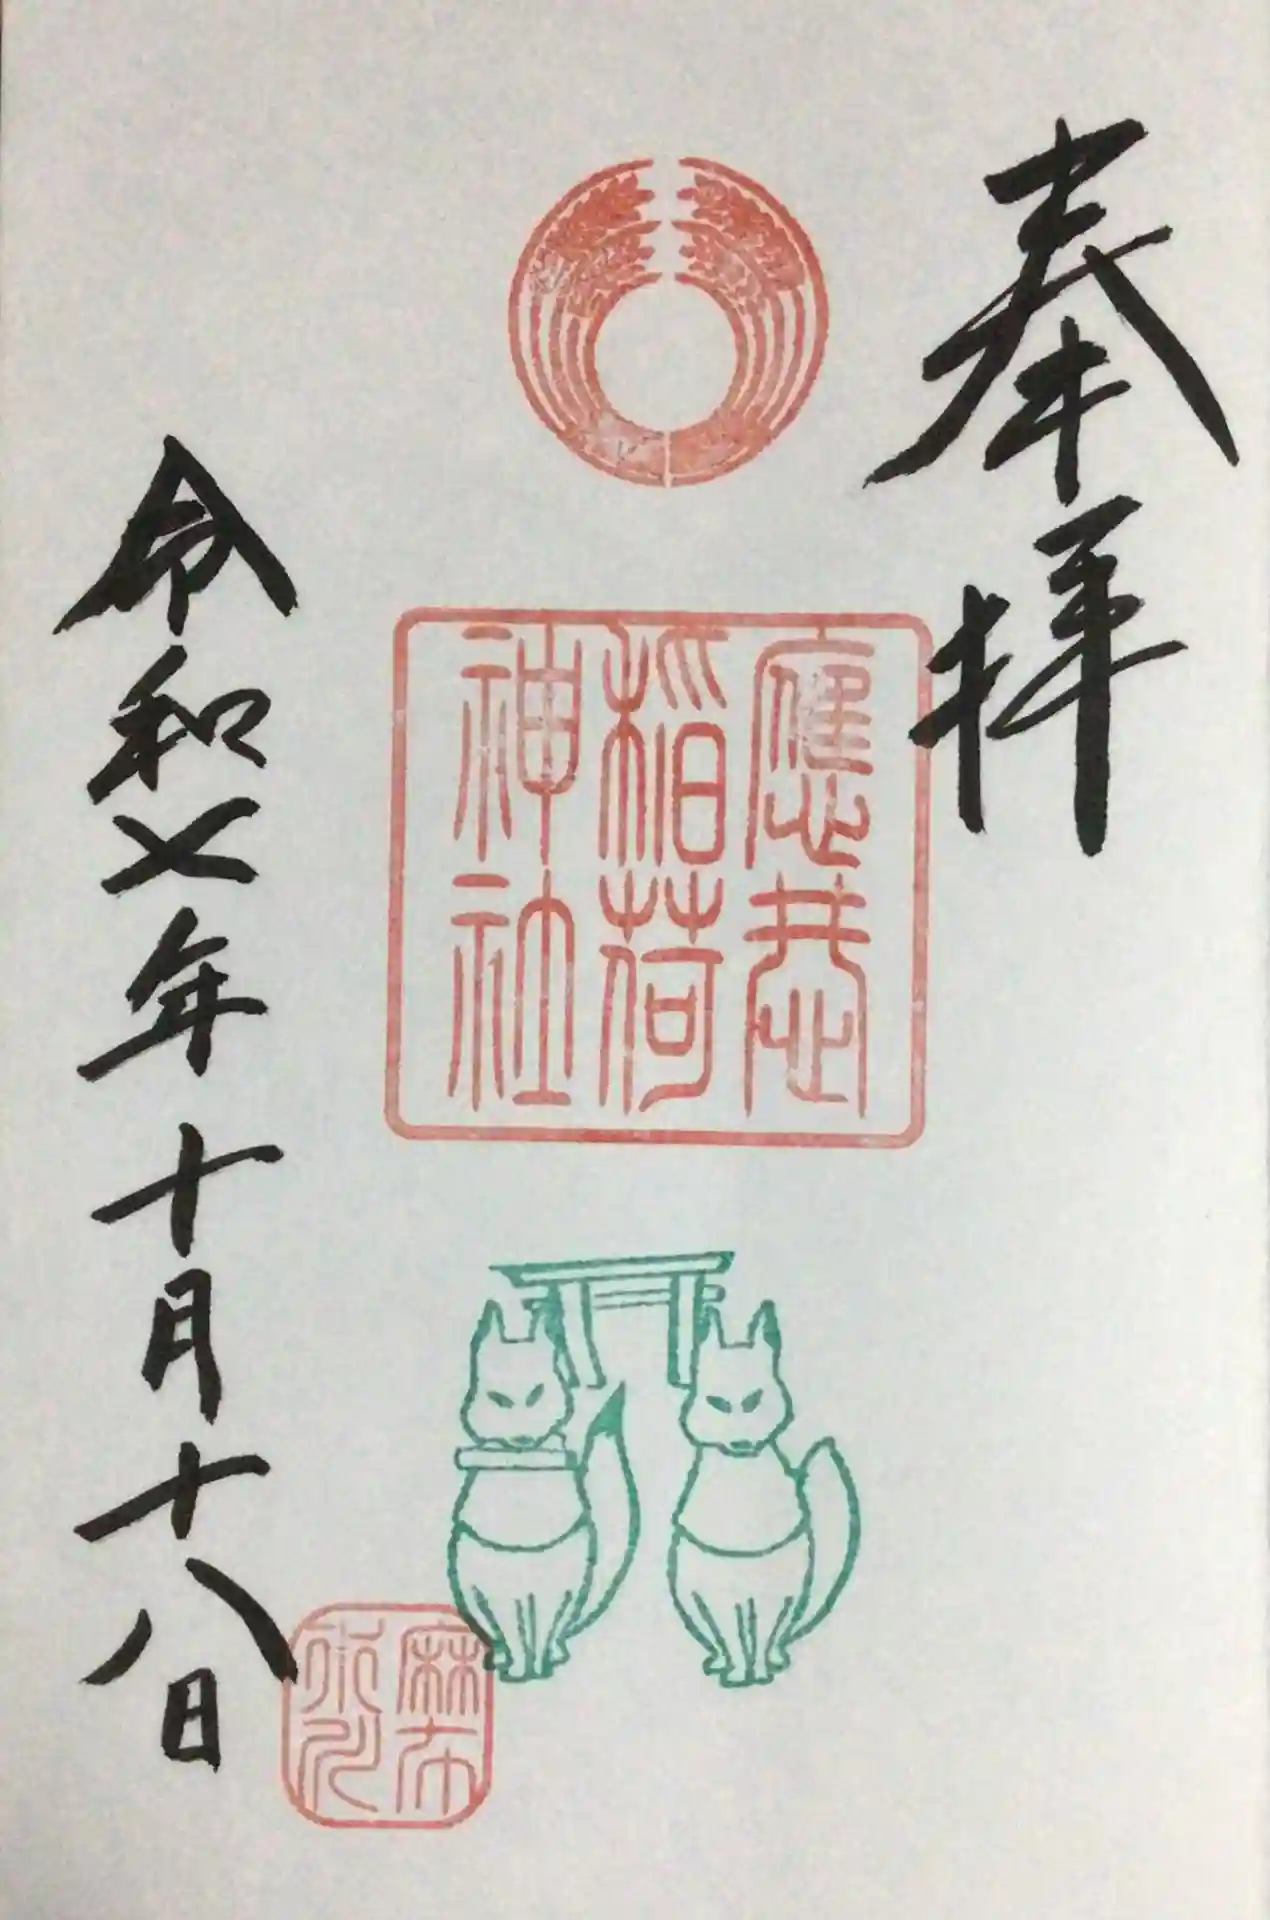 奉拝
應恭
稲荷
神社
令和七年十月十八日
麻布
氷川